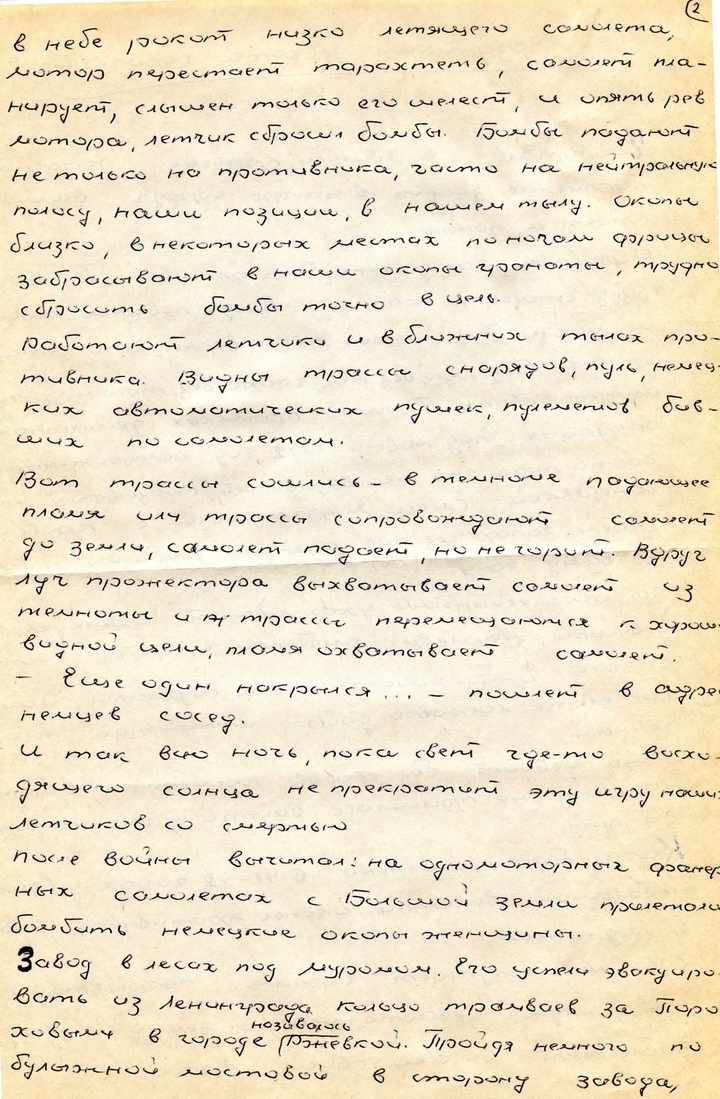 2
в небе рокот низко летящего самолета,
мотор перестает тарахтеть, самолет пла-
нирует, слышен только его шелест, и опять рев
мотора, летчик сбросил бомбы. Бомбы падают
не только на противника, часто на нейтральную
полосу, наши позиции, в нашем тылу. Окопы
близко, в некоторых местах по ночам фрицы
забрасывают в наши окопы гранаты, трудно
сбросить бомбы точно в цель.
Работают летчики и в ближних тылах про-
тивника. Видны трассы снарядов, пуль, немец-
ких автоматических пушек, пулеметов бив-
ших по самолетам.
Вот трассы сошлись – в темноте падающее
пламя или трассы сопровождают самолет
до земли, самолет падает, но не горит. Вдруг
луч прожектора выхватывает самолет из
темноты и трассы перемещаются к хорошо
видной цели, пламя охватывает самолет.
– Еще один накрылся... – пошлет в адрес
немцев сосед.
И так всю ночь, пока свет где-то восхо-
дящего солнца не прекратит эту игру наших
летчиков со смертью
После войны вычитал: на одномоторных фанер
ных самолетах с Большой земли прилетали
бомбить немецкие окопы женщины.
Завод в лесах под Муромом. Его успели эвакуиро-
вать из Ленинграда. Кольцо трамваев за Поро
ховыми в городе называлось Ржевкой. Пройдя немного по
булыжной мостовой в сторону завода,